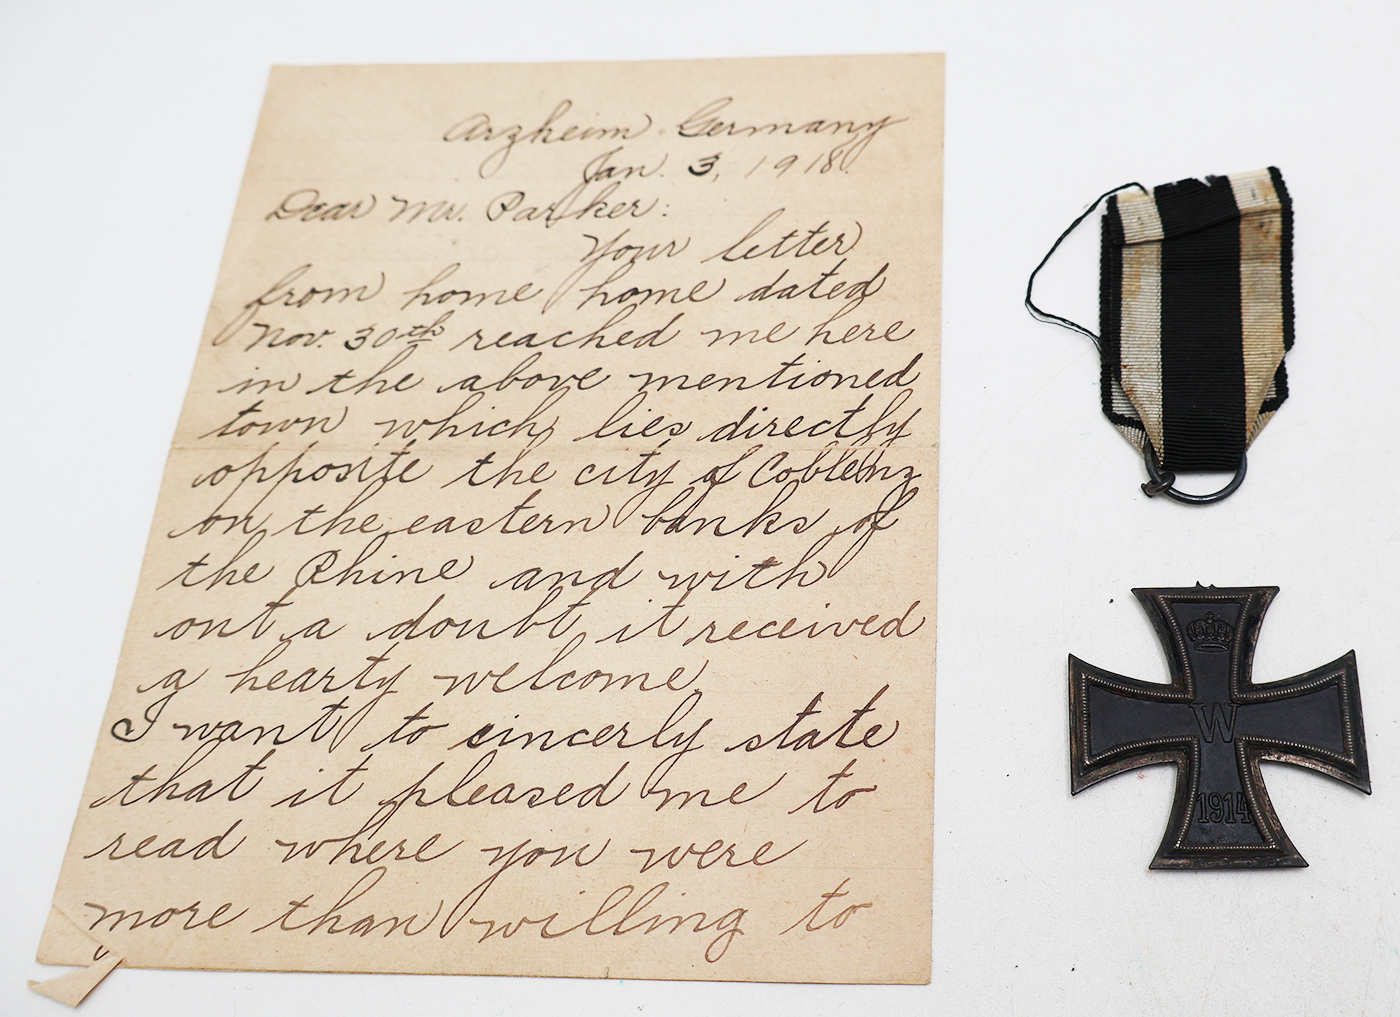 Arzheim Germany
Jan. 3, 1918.
Dear Mr. Parker:
Your letter
from home home dated
Nov. 30th reached me here
in the above mentioned
town which, lies directly
opposite the city of Coblenz
on the eastern banks of
the Rhine and with
out a doubt it received
a hearty welcome
I want to sincerly state
that it pleased me to
read where you were
more than willing to
W
1914